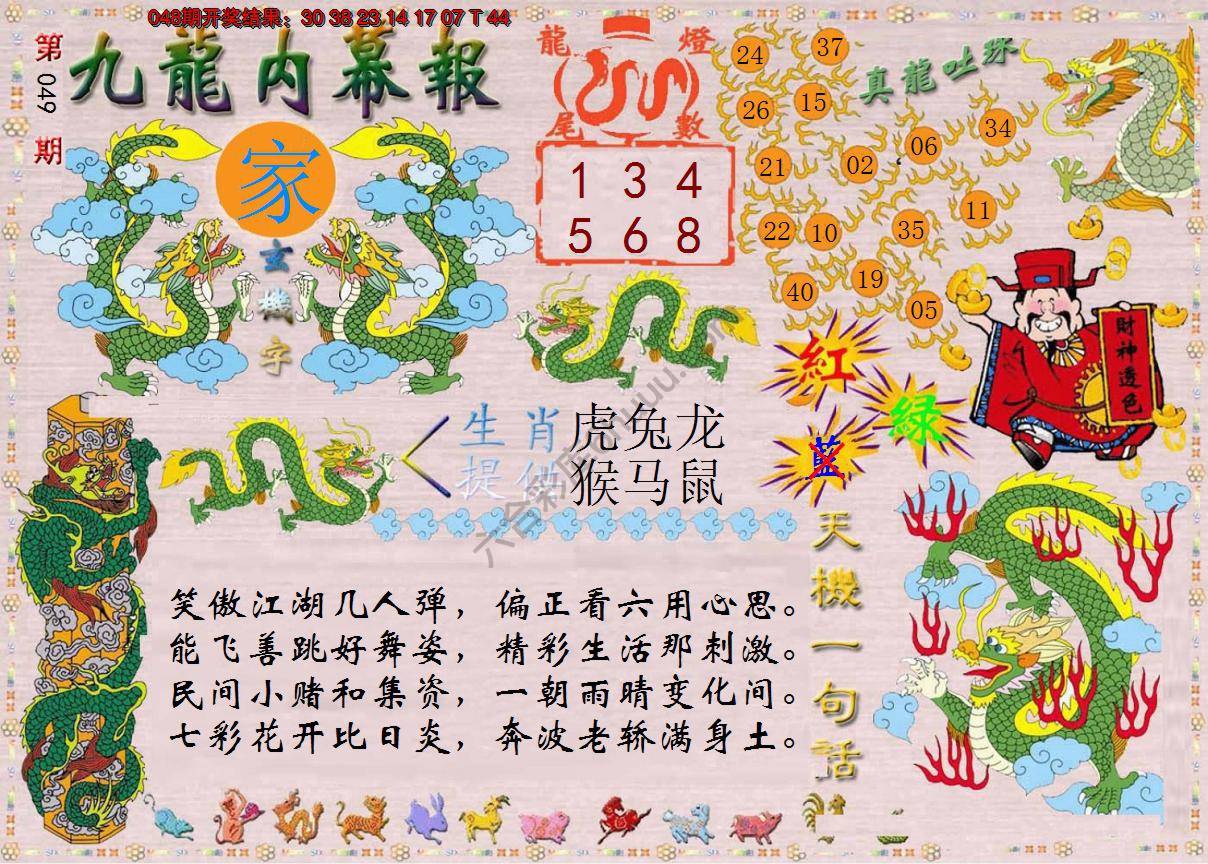 048期开奖结果：30 38 23 14 17 07 T 44
第049期
九龍内幕報
家
玄機字
龍燈尾數
1 3 4
5 6 8
真龍吐珠
24
37
26
15
34
06
21
02
11
22
10
35
19
40
05
財神透色
紅
綠
藍
生肖 虎兔龙
提供 猴马鼠
天機一句話
笑傲江湖几人弹，偏正看六用心思。
能飞善跳好舞姿，精彩生活那刺激。
民间小赌和集资，一朝雨晴变化间。
七彩花开比日炎，奔波老轿满身土。